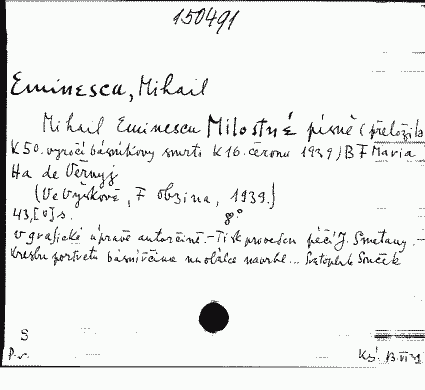 150491
Eminescu, Mihail
Mihail Eminescu Milostné písně (přeložila
K 50. výročí básníkovy smrti k 16. červnu 1939) B F Maria
de Věrnyj
(Ve Vyškově, F Obzina, 1939.)
43, [V] s. 8°
V grafické úpravě autorčině. - Tisk proveden péčí J. Smetany.
Kresbu portretu básníkova na obálce navrhl... Svatopluk Souček
S
P. v.